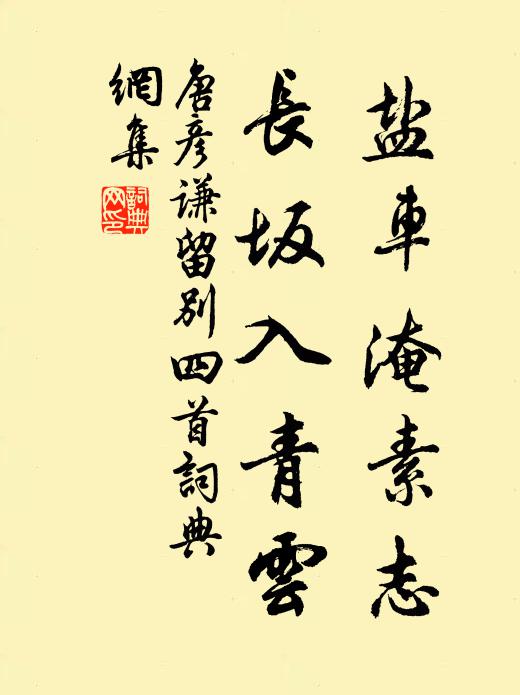 盐車淹素志
長坂入青雲
唐彦谦留别四首詞典
網集
詞典
网印